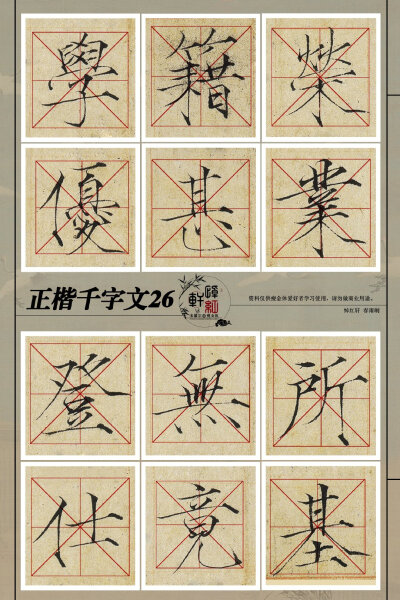 榮業所基
籍甚無竟
學優登仕
正楷千字文26
资料仅供瘦金体爱好者学习使用，请勿做商业用途。